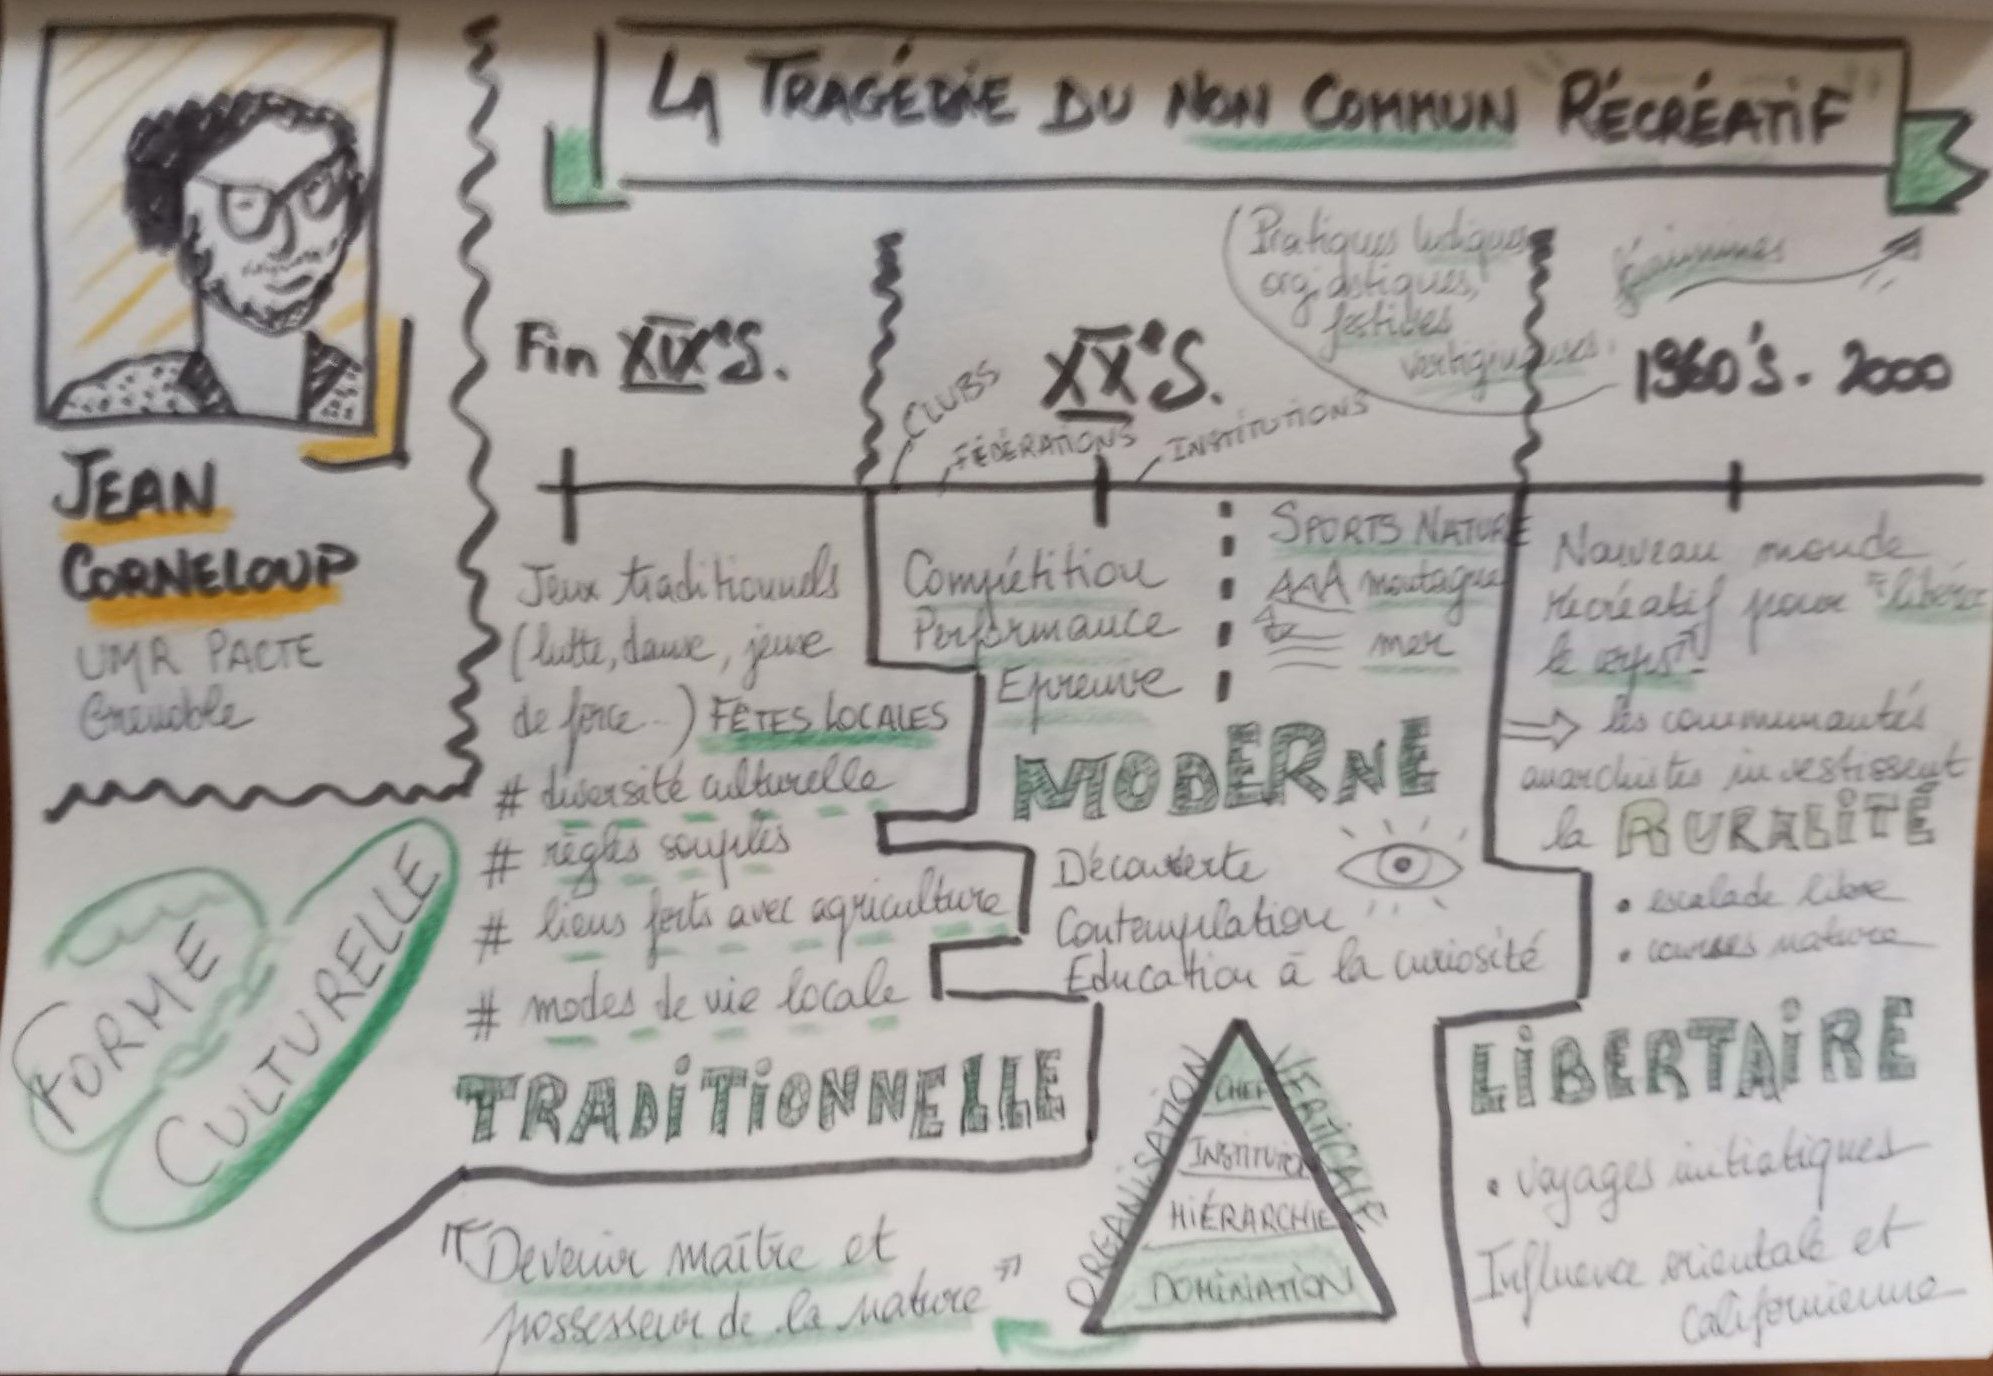 LA TRAGÉDIE DU NON COMMUN RÉCRÉATIF
JEAN
CORNELOUP
UMR PACTE
Grenoble
FORME
CULTURELLE
Fin XIXe S.
Jeux traditionnels
(lutte, danse, jeux
de force...) FÊTES LOCALES
# diversité culturelle
# règles souples
# liens forts avec agriculture
# modes de vie locale
TRADITIONNELLE
XXe S.
CLUBS
FÉDÉRATIONS
INSTITUTIONS
Compétition
Performance
Epreuve
SPORTS NATURE
montagne
mer
MODERNE
Découverte
Contemplation
Education à la curiosité
ORGANISATION
VERTICALE
CHEF
INSTITUTION
HIÉRARCHIE
DOMINATION
"Devenir maître et
possesseur de la nature"
(Pratiques ludiques
orgiastiques,
festives
vertigineuses.
féminines
1960's - 2000
Nouveau monde
récréatif pour "libérer
le corps"
⇒ les communautés
anarchistes investissent
la RURALITÉ
• escalade libre
• courses nature
LIBERTAIRE
• voyages initiatiques
Influence orientale et
Californienne